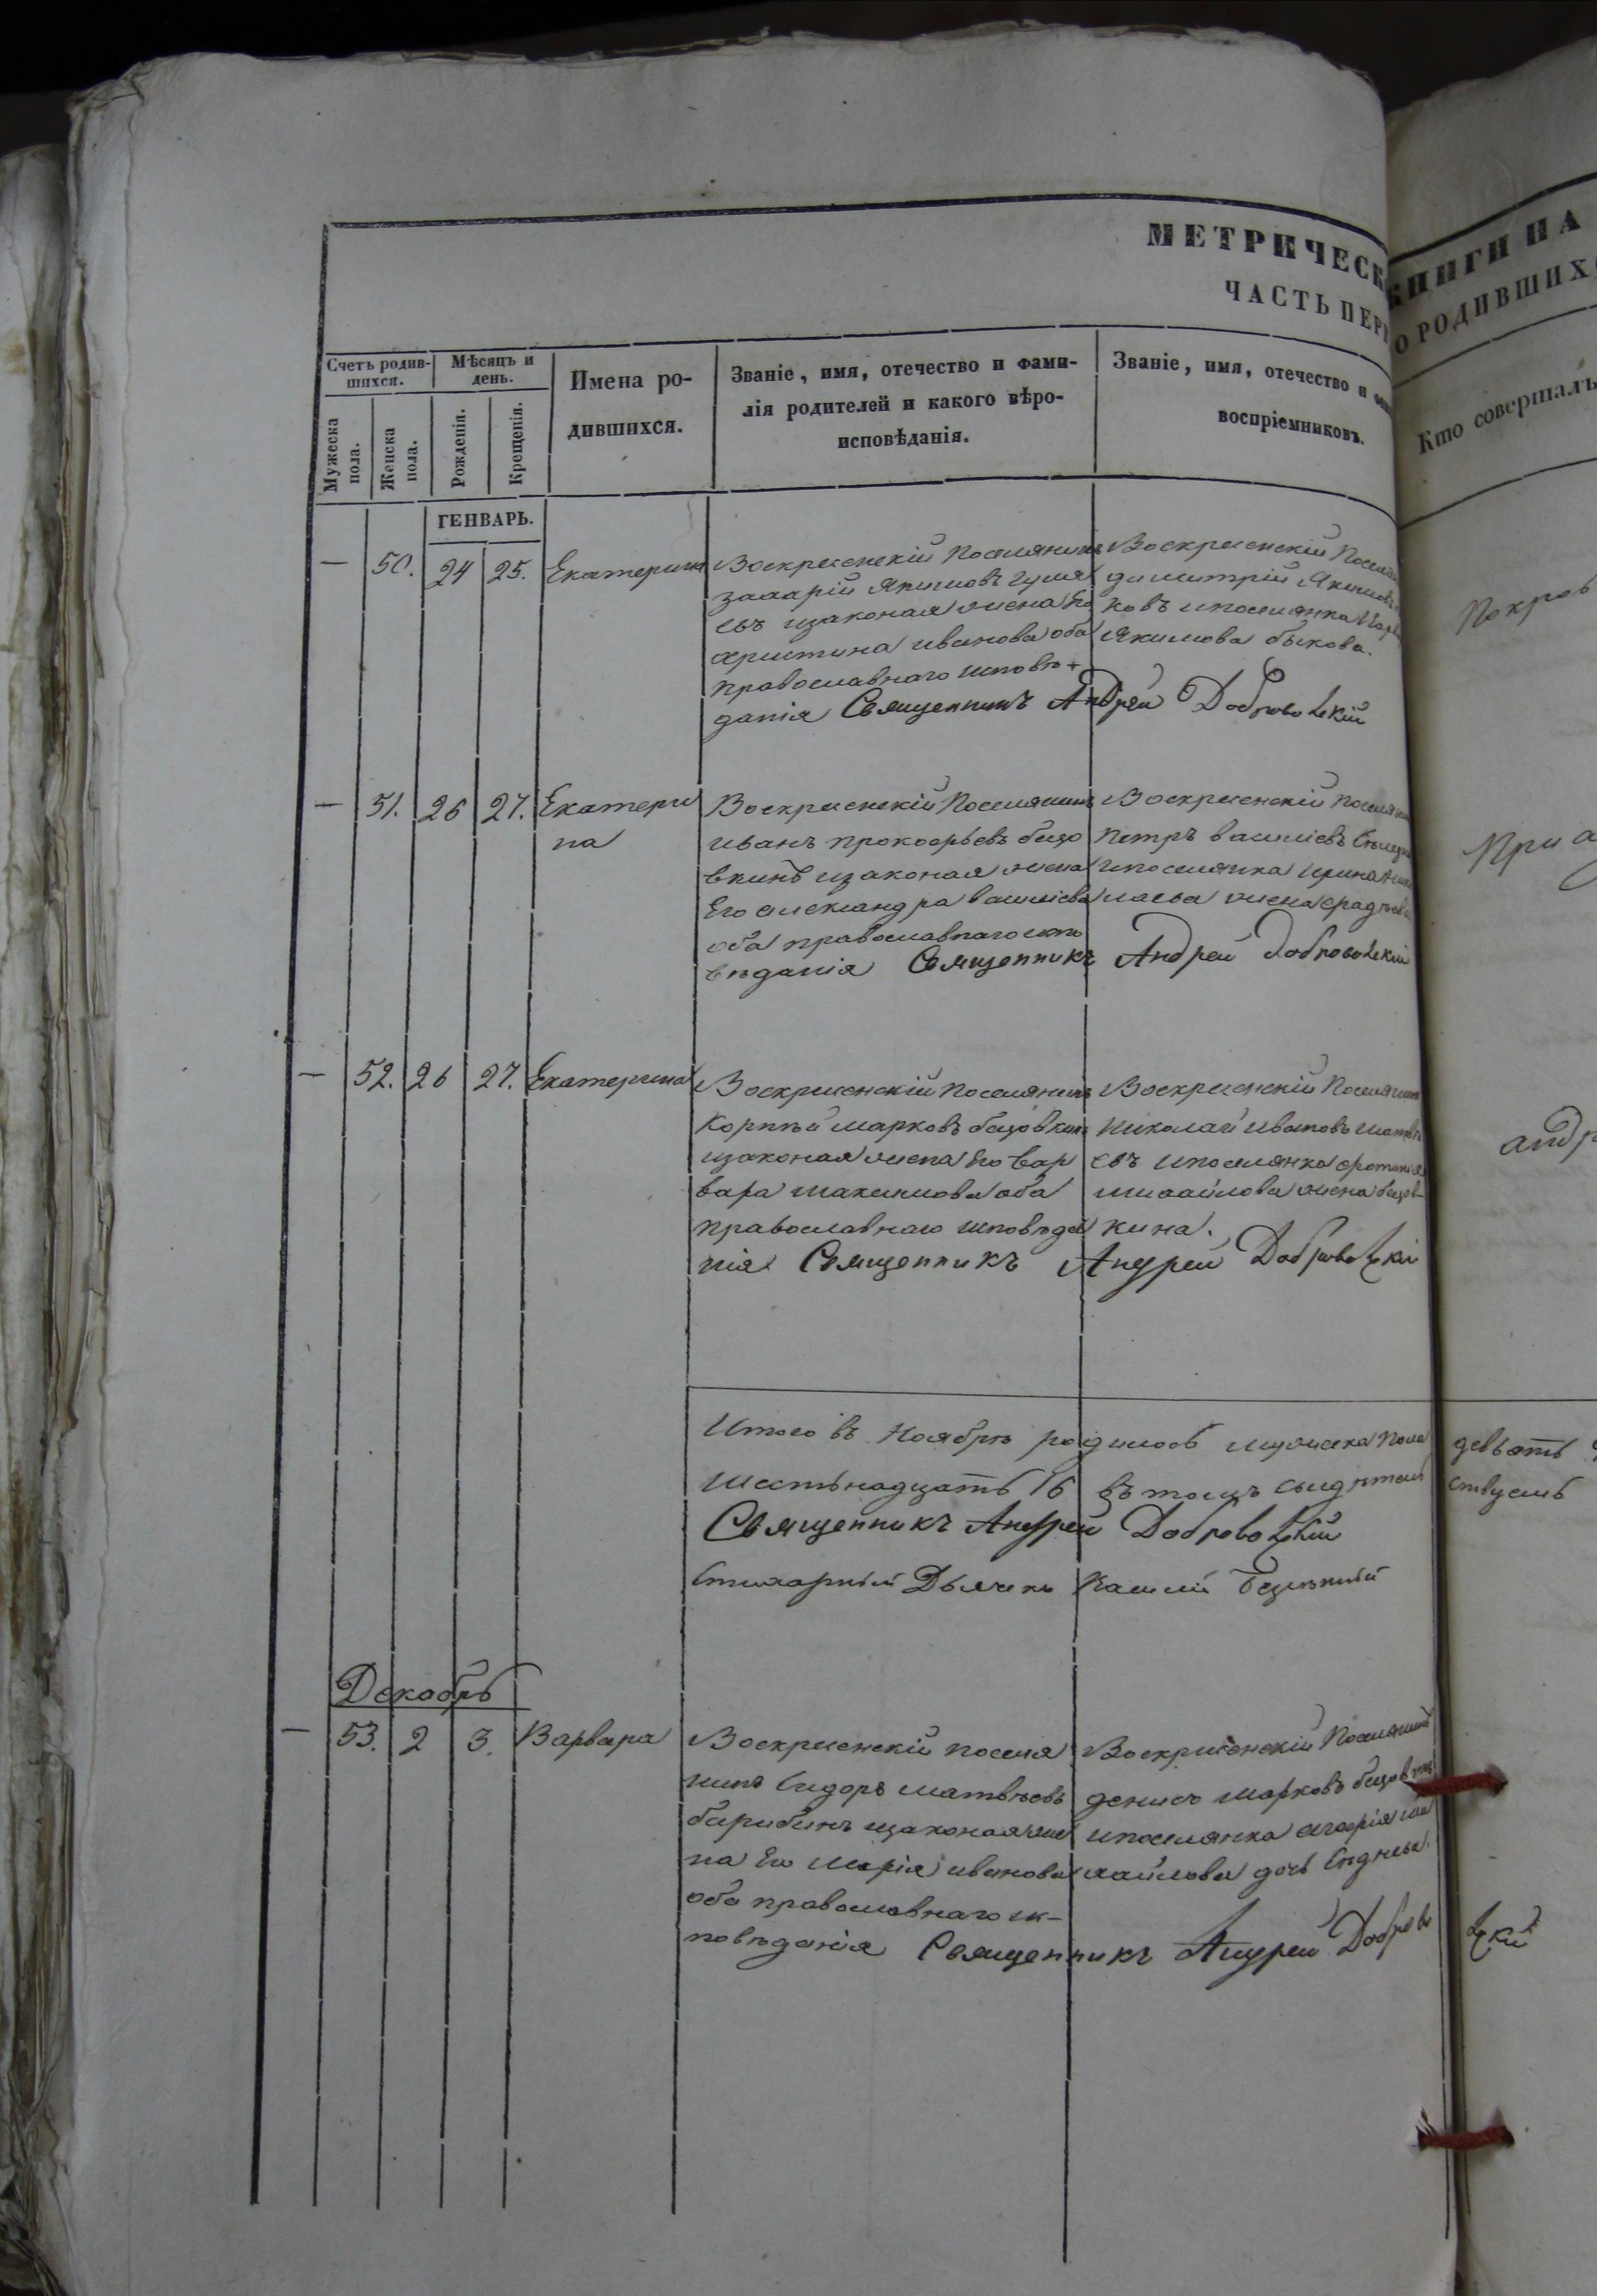 МЕТРИЧЕСК
КНИГИ НА
ЧАСТЬ ПЕР
О РОДИВШИХ
Счетъ родив-
шихся.
Мѣсяцъ и
день.
Мужеска
пола.
Женска
пола.
Рожденія.
Крещенія.
Имена ро-
дившихся.
Званіе, имя, отечество и фами-
лія родителей и какого вѣро-
исповѣданія.
Званіе, имя, отечество и
воспріемниковъ.
Кто совершалъ
ГЕНВАРЬ.
— 50. 24 25. Екатерина
Воскресенскій Поселянинъ
захарій Якимовъ
евъ изаконая жена Его
христина иванова оба
православнаго исповѣ
данія Священникъ Андрей Добровольскій
Воскресенскій
димитрій Якимовъ
ковъ ипоселянка
Якимова быкова.
Покров
— 51. 26 27. Екатери
на
Воскресенскій Поселянинъ
иванъ прокофьевъ бизо
вкинъ изаконая жена
Его александра василіева
оба православнаго испо
вѣданія Священникъ Андрей Добровольскій
Воскресенскій
Петръ василіевъ
ипоселянка ирина
жена
При
— 52. 26 27. Екатерина
Воскресенскій Поселянинъ
Корнѣй марковъ бизовкинъ
изаконая жена Его вар
вара максимова оба
православнаго исповѣда
нія Священникъ Андрей Добровольскій
Воскресенскій Поселянинъ
Николай ивановъ
евъ ипоселянка
михайлова жена бизов-
кина.
андр
Итого въ Ноябрѣ родилось мужеска пола девьять
Шестьнадцать 16 въ томъ свидѣтель ствуемъ
Священникъ Андрей Добровольскій
Стихарный Дьячекъ
Декабрь
— 53. 2 3. Варвара
Воскресенскій поселя
нинъ Сидоръ матвѣевъ
барибинъ изаконая же
на Его Марія иванова
оба православнаго ис-
повѣданія Священникъ Андрей Добровольскій
Воскресенскій Поселянинъ
денисъ марковъ бизовкинъ
ипоселянка агафія ми
хайлова дочь